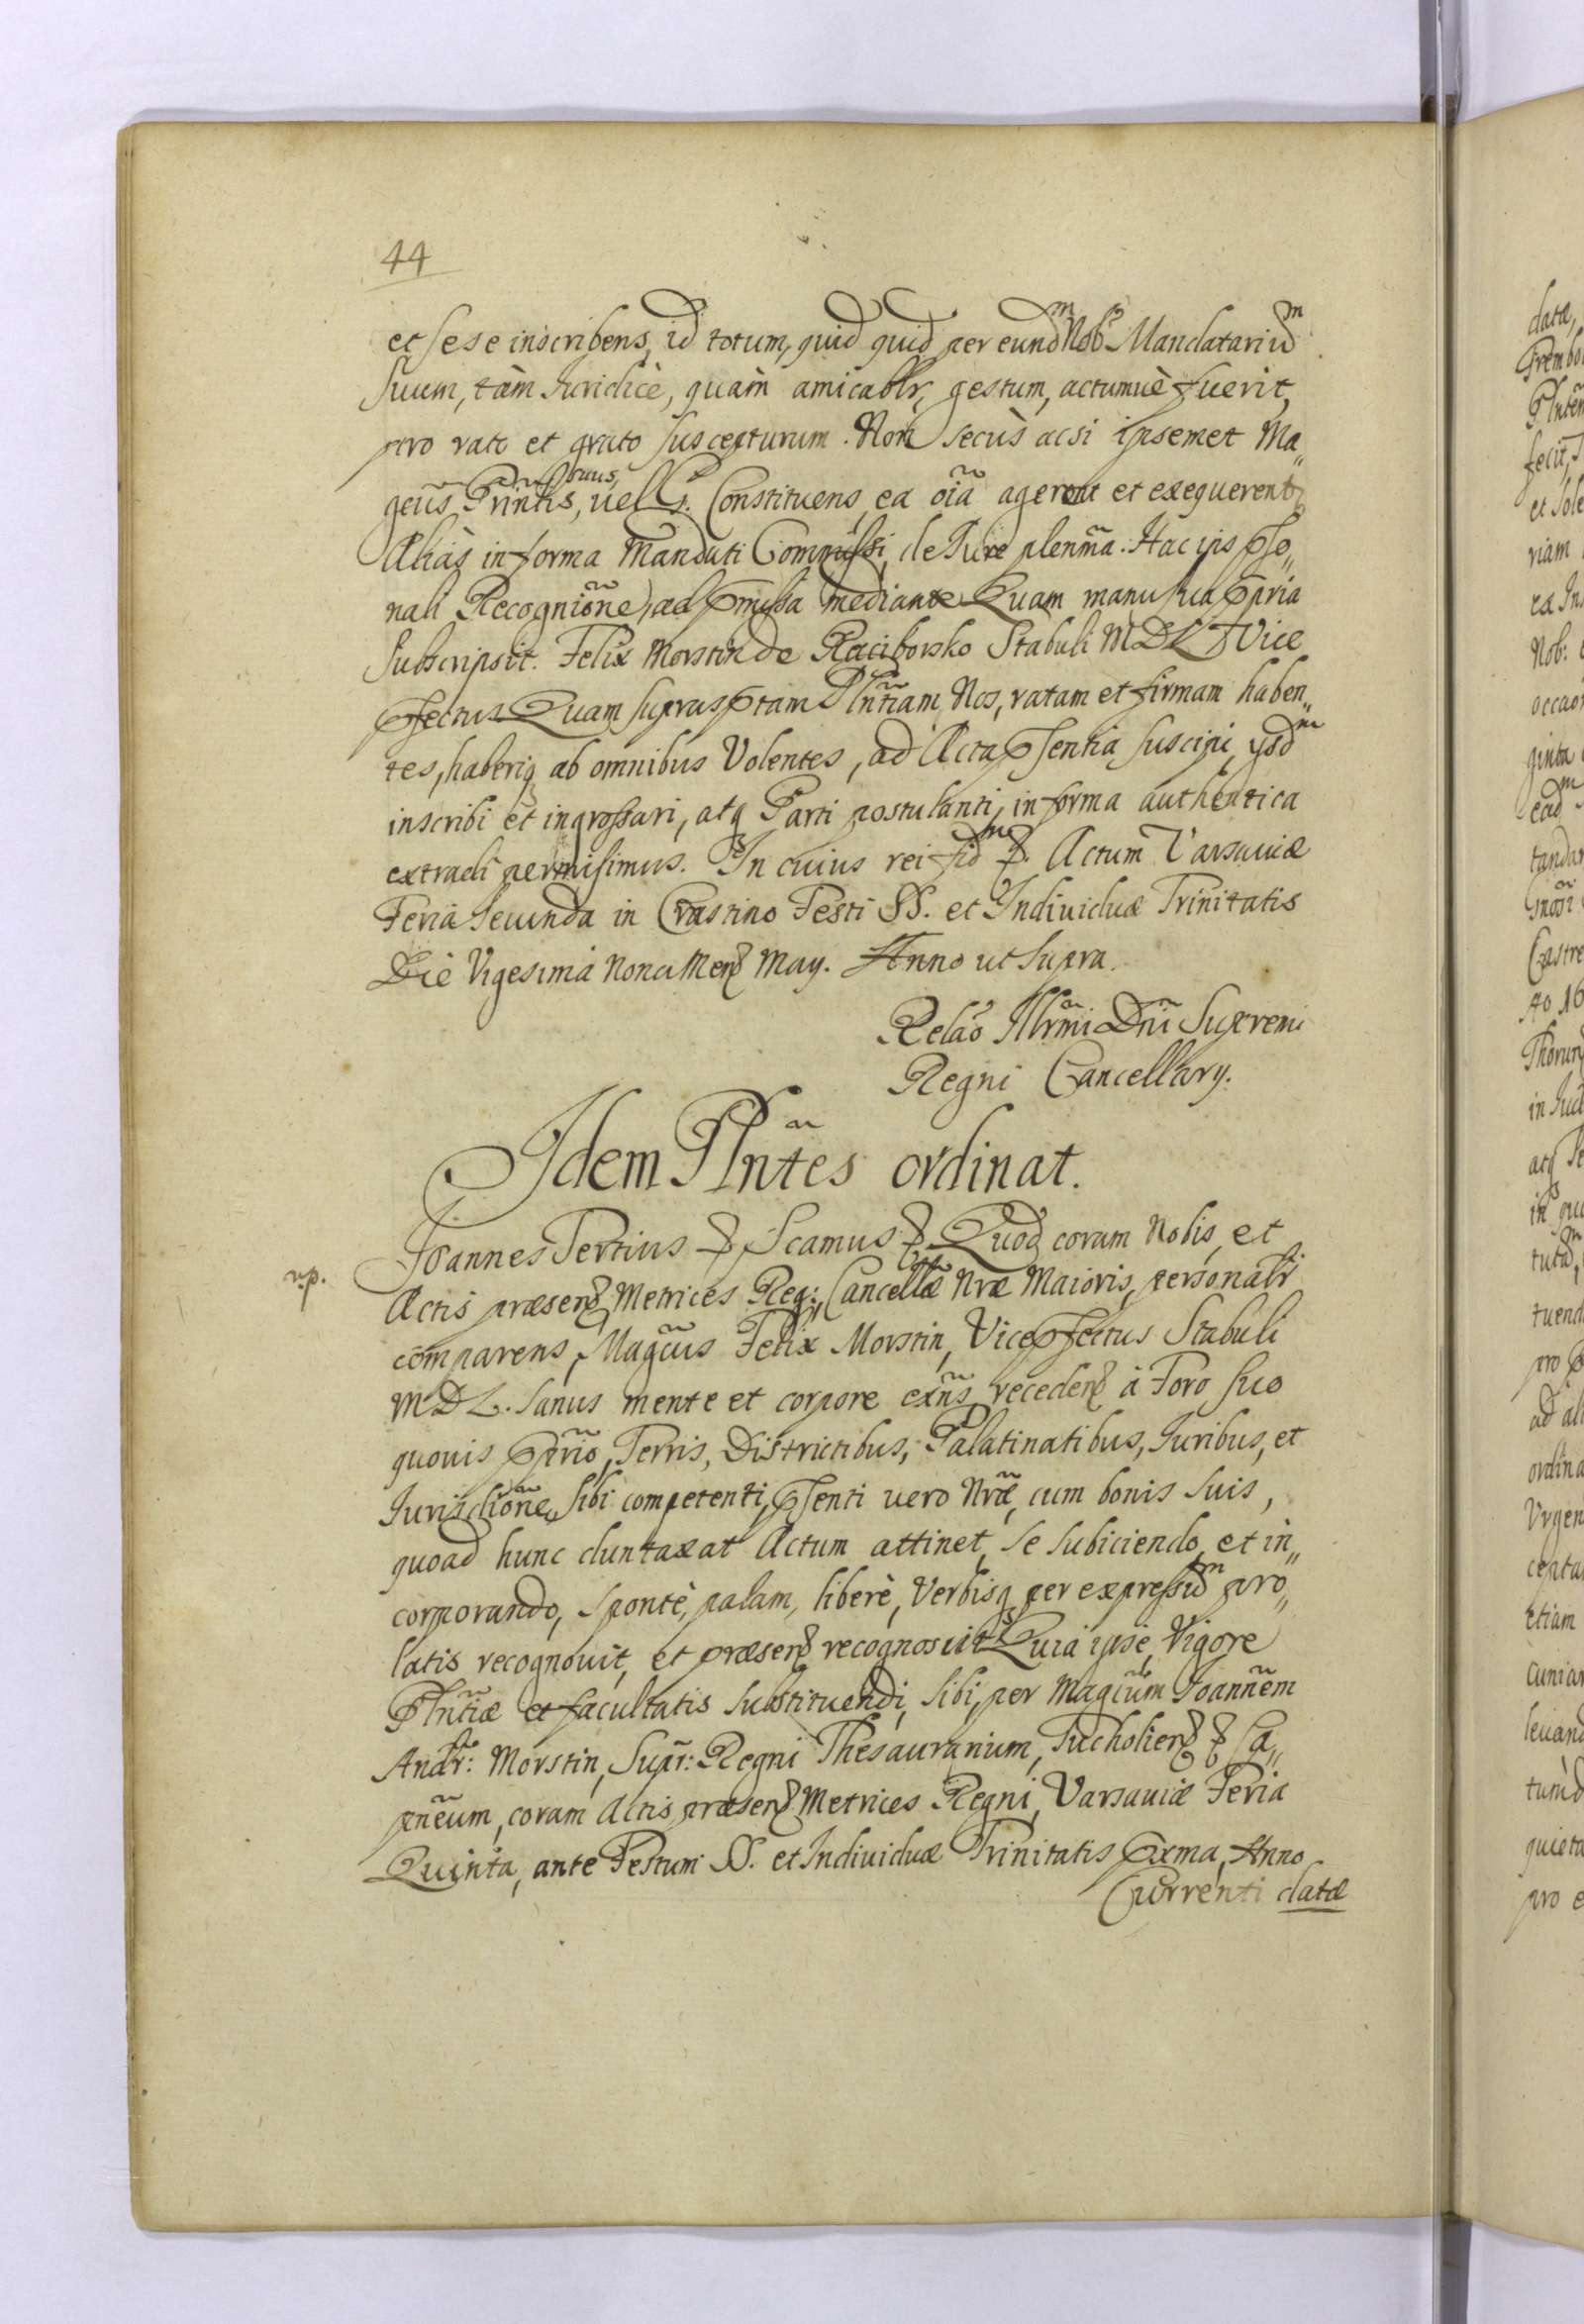 44
et sese inscribens, id totum, quid quid per eundm Nob: Mandatariũm
suum, tàm Iuridicè, quàm amicablr, gestum, actumuè fuerit,
pro rato et grato suscepturum. Non secùs acsi ipsemet Ma„
gcus Prinlis, uel G. Constituens, ea oĩa agerent et exequerentr
Aliàs in forma Mandati Commissi, de Iure plenma. Hac ips pso„
nali Recognione, ad pmissa mediante. Quam manu sua ppria
Subscripsit. Felix Morstin de Raciborsko Stabuli MDL Vice
pfectus. Quam suprasptam Plntiam, Nos, ratam et firmam haben„
tes, haberiq ab omnibus Volentes, ad Acta psentia suscipi, ysdm
inscribi et ingrossari, atq Parti postulanti, in forma authentica
extradi permisimus. In cuius rei fidm &. Actum Varsauiæ
Feria Secunda in Crastino Festi SS. et Indiuiduæ Trinitatis
Die Vigesima Nona Mens May. Anno ut supra.
Relão Illrmi Dñi Supremi
Regni Cancellary.
Idem Plntes ordinat.
Ioannes Tertius & Scamus & Quod coram Nobis, et
np.
Actis præsens Metrices Reg: Cancellæ Nræ Maioris, personalr
comparens, Magcus Felix Morstin, Vicepfectus Stabuli
MDL. sanus mente et corpore exñs, recedens à Foro suo
quouis pprio, Terris, Districtibus, Palatinatibus, Iuribus, et
Iurisdione, sibi competenti, psenti vero Nræ, cum bonis suis,
quoad hunc duntaxat Actum attinet, se subiciendo, et in„
corporando, sponte, palam, liberè, Verbisq per expressũm pro„
latis recognouit, et præsens recognoscit. Quia ipse Vigore
Plntiæ et facultatis substituendi, sibi, per Magcum Ioannem
Andr: Morstin, Supr: Regni Thesaurarium, Tucholiens & Ca„
pneum, coram Actis præsens Metrices Regni, Varsauiæ Feria
Quinta, ante Festum SS. et Indiuiduæ Trinitatis pxma, Anno
Currenti datæ